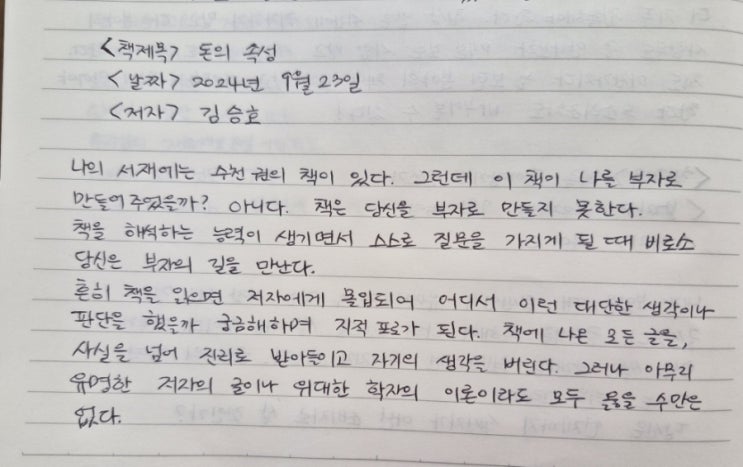 <책제목> 돈의 속성
<날짜> 2024년 9월 23일
<저자> 김승호
나의 서재에는 수천 권의 책이 있다. 그런데 이 책이 나를 부자로
만들어주었을까? 아니다. 책은 당신을 부자로 만들지 못한다.
책을 해석하는 능력이 생기면서 스스로 질문을 가지게 될 때 비로소
당신은 부자의 길을 만난다.
흔히 책을 읽으면 저자에게 몰입되어 어디서 이런 대단한 생각이나
판단을 했을까 궁금해하며 지적 포로가 된다. 책에 나온 모든 글을,
사실을 넘어 진리로 받아들이고 자기의 생각을 버린다. 그러나 아무리
유명한 저자의 글이나 위대한 학자의 이론이라도 모두 옳을 수만은
없다.